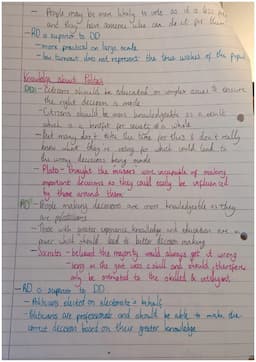 - People may be more likely to vote as it is less
and they have someone who can do it for them
- RD is superior to DD
- more practical on large scale
- low turnout does not represent the true wishes of the people
Knowledge about Politics
DD: - Citizens should be educated on complex issues to ensure
the right decision is made
- Citizens should be more knowledgeable as a result
which is a benefit for society as a whole
- But many don't have the time for this & don't really
know what they're voting for which could lead to
the wrong decisions being made
- Plato - thought the masses were incapable of making
important decisions as they could easily be influenced
by those around them
RD: - People making decisions are more knowledgeable as they
are politicians
- Those with greater experience, knowledge and education are in
power which should lead to better decision making
- Socrates - believed the majority would always get it wrong
long as the govt was a skill and should, therefore,
only be entrusted to the skilled & intelligent
- RD is superior to DD
- Politicians elected on electorate's behalf
- Politicians are professionals and should be able to make the
correct decision based on their greater knowledge